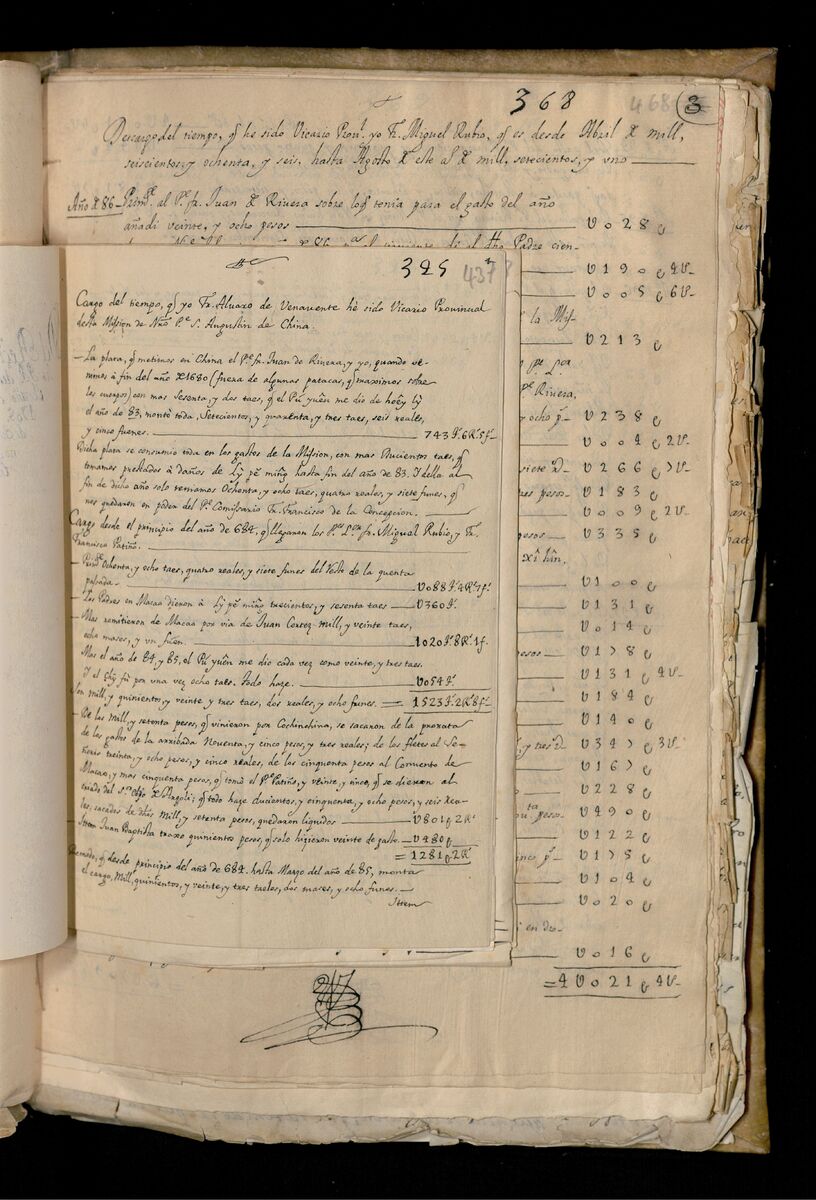 368
468
3
Descargo del tiempo, q̃ he sido Vicario Provl. yo Fr. Miguel Rubio, q̃ es desde Abril de mill,
seiscientos, y ochenta, y seis, hasta Agosto de este año de mill, setecientos, y uno
Año de 86 - Primte. al Pe. fr. Juan de Rivera sobre lo q̃ tenia para el gasto del año
añadi veinte, y ocho pesos U028 p
Padre cien-
U190 p 4 r
U005 p 6 r
la Mis-
U213 p
Pe. Rivera,
y ocho p. U238 p
U004 p 2 r
siete U266 p
pesos U183 p
U009 p 2 r
pesos U335 p
xî hân,
U100 p
U131 p
U014 p
pesos U178 p
U131 p 4 r
U184 p
U140 p
U347 p 3 r
U167 p
U228 p
pesos U490 p
U122 p
U175 p
U104 p
U020 p
U016 p
= 4U021 p 4 r
325
437
Cargo del tiempo, q̃ yo Fr. Alvaro de Venavente hè sido Vicario Provinçial
desta Mission de Nro. Pe. S. Augustin de China.
- La plata, q̃ metimos en China el Pe. fr. Juan de Rivera, y yo, quando ve-
nimos à fin del año de 1680 (fuera de algunas patacas, q̃ maximos sobre
los cuerpos) con mas sesenta, y dos taes, q̃ el Pú yuên me dio de
el año de 83, montè toda, Setecientos, y quarenta, y tres taes, seis reales,
y cinco funes. 743 t. 6 R. 5 f.
Dicha plata se consumio toda en los gastos de la Mission, con mas Ducientos taes, q̃
tomamos prestados à daños de Lý pê mîng hasta fin del año de 83. I della al
fin de dicho año solo teniamos Ochenta, y ocho taes, quatro reales, y siete funes, q̃
nos quedaron en poder del Pe. Comissario Fr. Francisco de la Concepcion.
Cargo desde el principio del año de 684, q̃ llegaron los Pes. fr. Miguel Rubio, y Fr.
Francisco Patiño.
- Primte. Ochenta, y ocho taes, quatro reales, y siete funes del resto de la quenta
passada U088 t. 4 R. 7 f.
- Los Padres en Macao dieron à Lý pê mîng trecientos, y sesenta taes U360 t.
- Mas remitieron de Macao por via de Juan Cortez mill, y veinte taes,
ocho mases, y un fuen. 1020 t. 8 R. 1 f.
Mas el año de 84 y 85, el Pú yuên me dio cada vez como veinte, y tres taes.
I el por una vez ocho taes. todo haze. U054 t.
Son mill, y quinientos, y veinte y tres taes, dos reales, y ocho funes. = 1523 t. 2 R. 8 f.
- De los mill, y setenta pesos, q̃ vinieron por Cochinchina, se sacaron de la prorata
de los gastos de la arribada Noventa, y cinco pesos, y tres reales; de los fletes al Se-
ñorio treinta, y ocho pesos, y cinco reales, de los cinquenta pesos al Convento de
Macao, y mas cinquenta pesos, q̃ tomó el Pe. Patiño, y veinte, y cinco, q̃ se dieron al
criado del Sor. Obpo. de Argoli; q̃ todo haze ducientos, y cinquenta, y ocho pesos, y seis rea-
les, sacados de dhos mill, y setenta pesos, quedaron liquidos U801 p 2 R.
Ittem Juan Baptista traxo quinientos pesos, q̃ solo hizieron veinte de gasto. U480 p
= 1281 p 2 R.
De modo, q̃ desde principio del año de 684. hasta Março del año de 85, monta
el cargo, Mill, quinientos, y veinte, y tres taeles, dos mases, y ocho funes.
Ittem